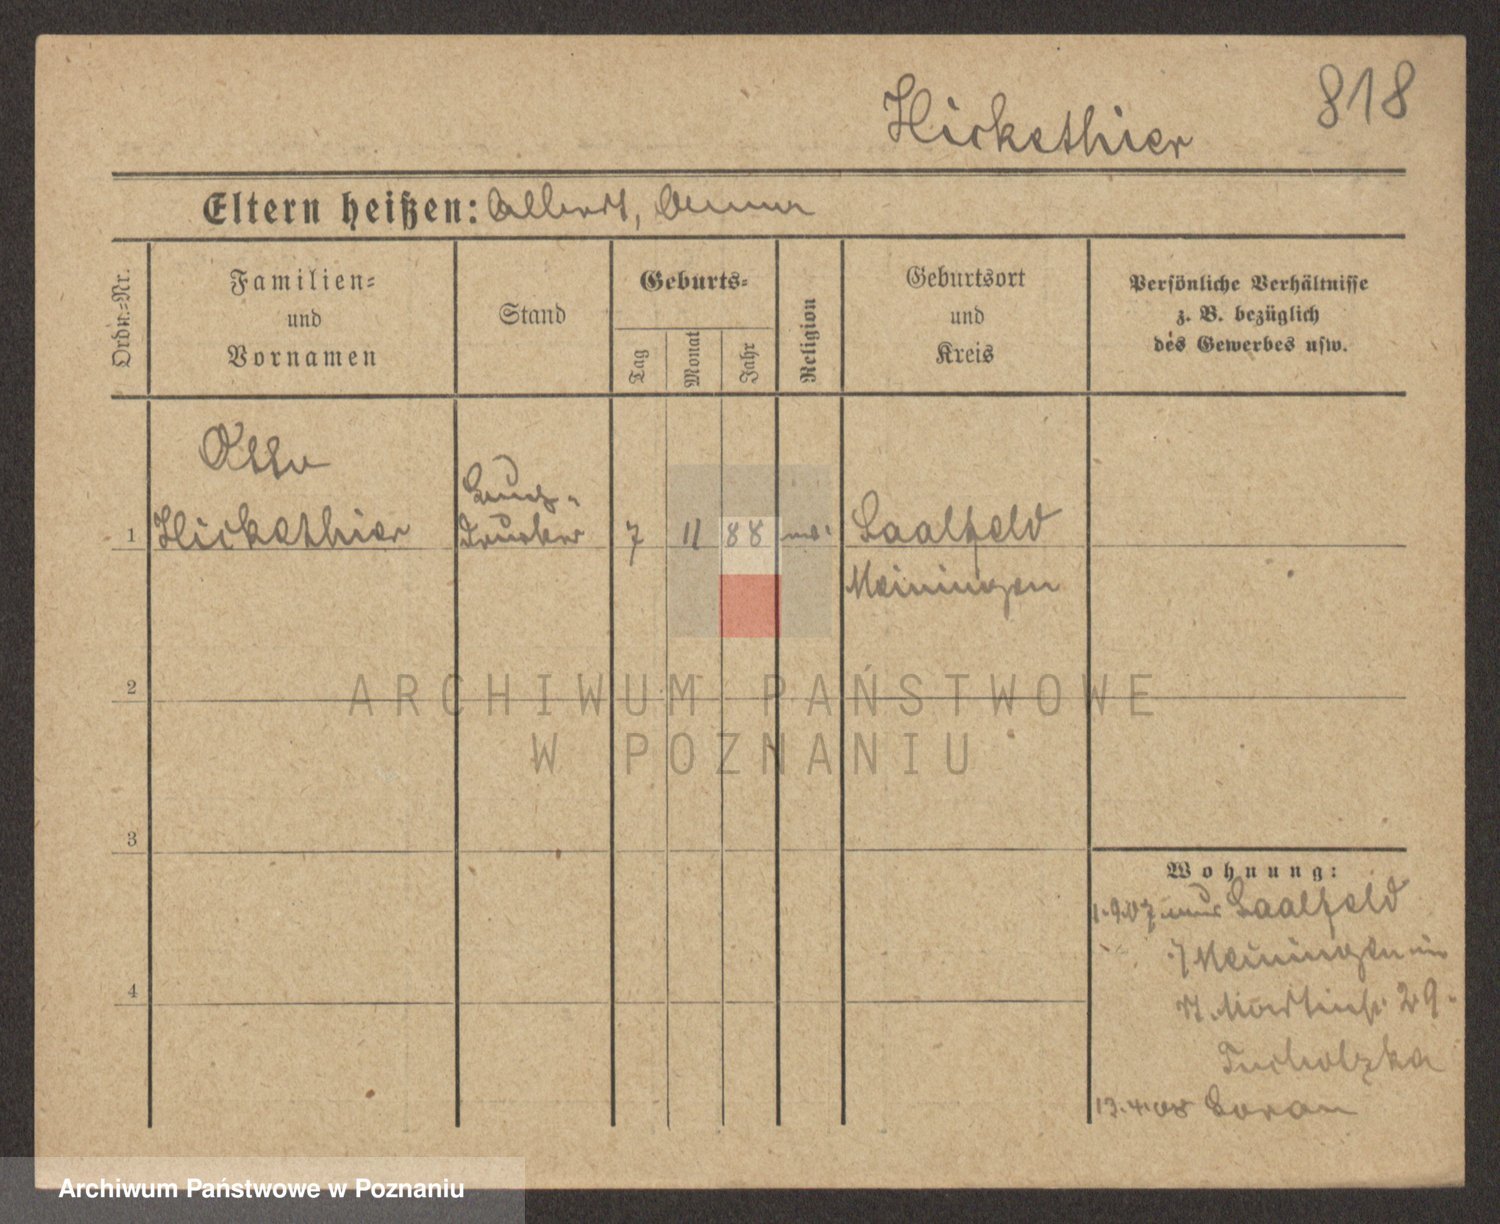 Hickethier
818
Eltern heißen: Albert, Anna
Ordn.-Nr.
Familien-
und
Vornamen
Stand
Geburts-
Tag
Monat
Jahr
Religion
Geburtsort
und
Kreis
Persönliche Verhältnisse
z. B. bezüglich
des Gewerbes usw.
Otto
1 Hickethier
Buch-
drucker
7 11 88
Saalfeld
Meiningen
2
ARCHIWUM PAŃSTWOWE
W POZNANIU
3
Wohnung:
1.9.07 aus Saalfeld
Meiningen in
Martinstr. 29
Tucholzka
13.4.08 Soran
4
Archiwum Państwowe w Poznaniu